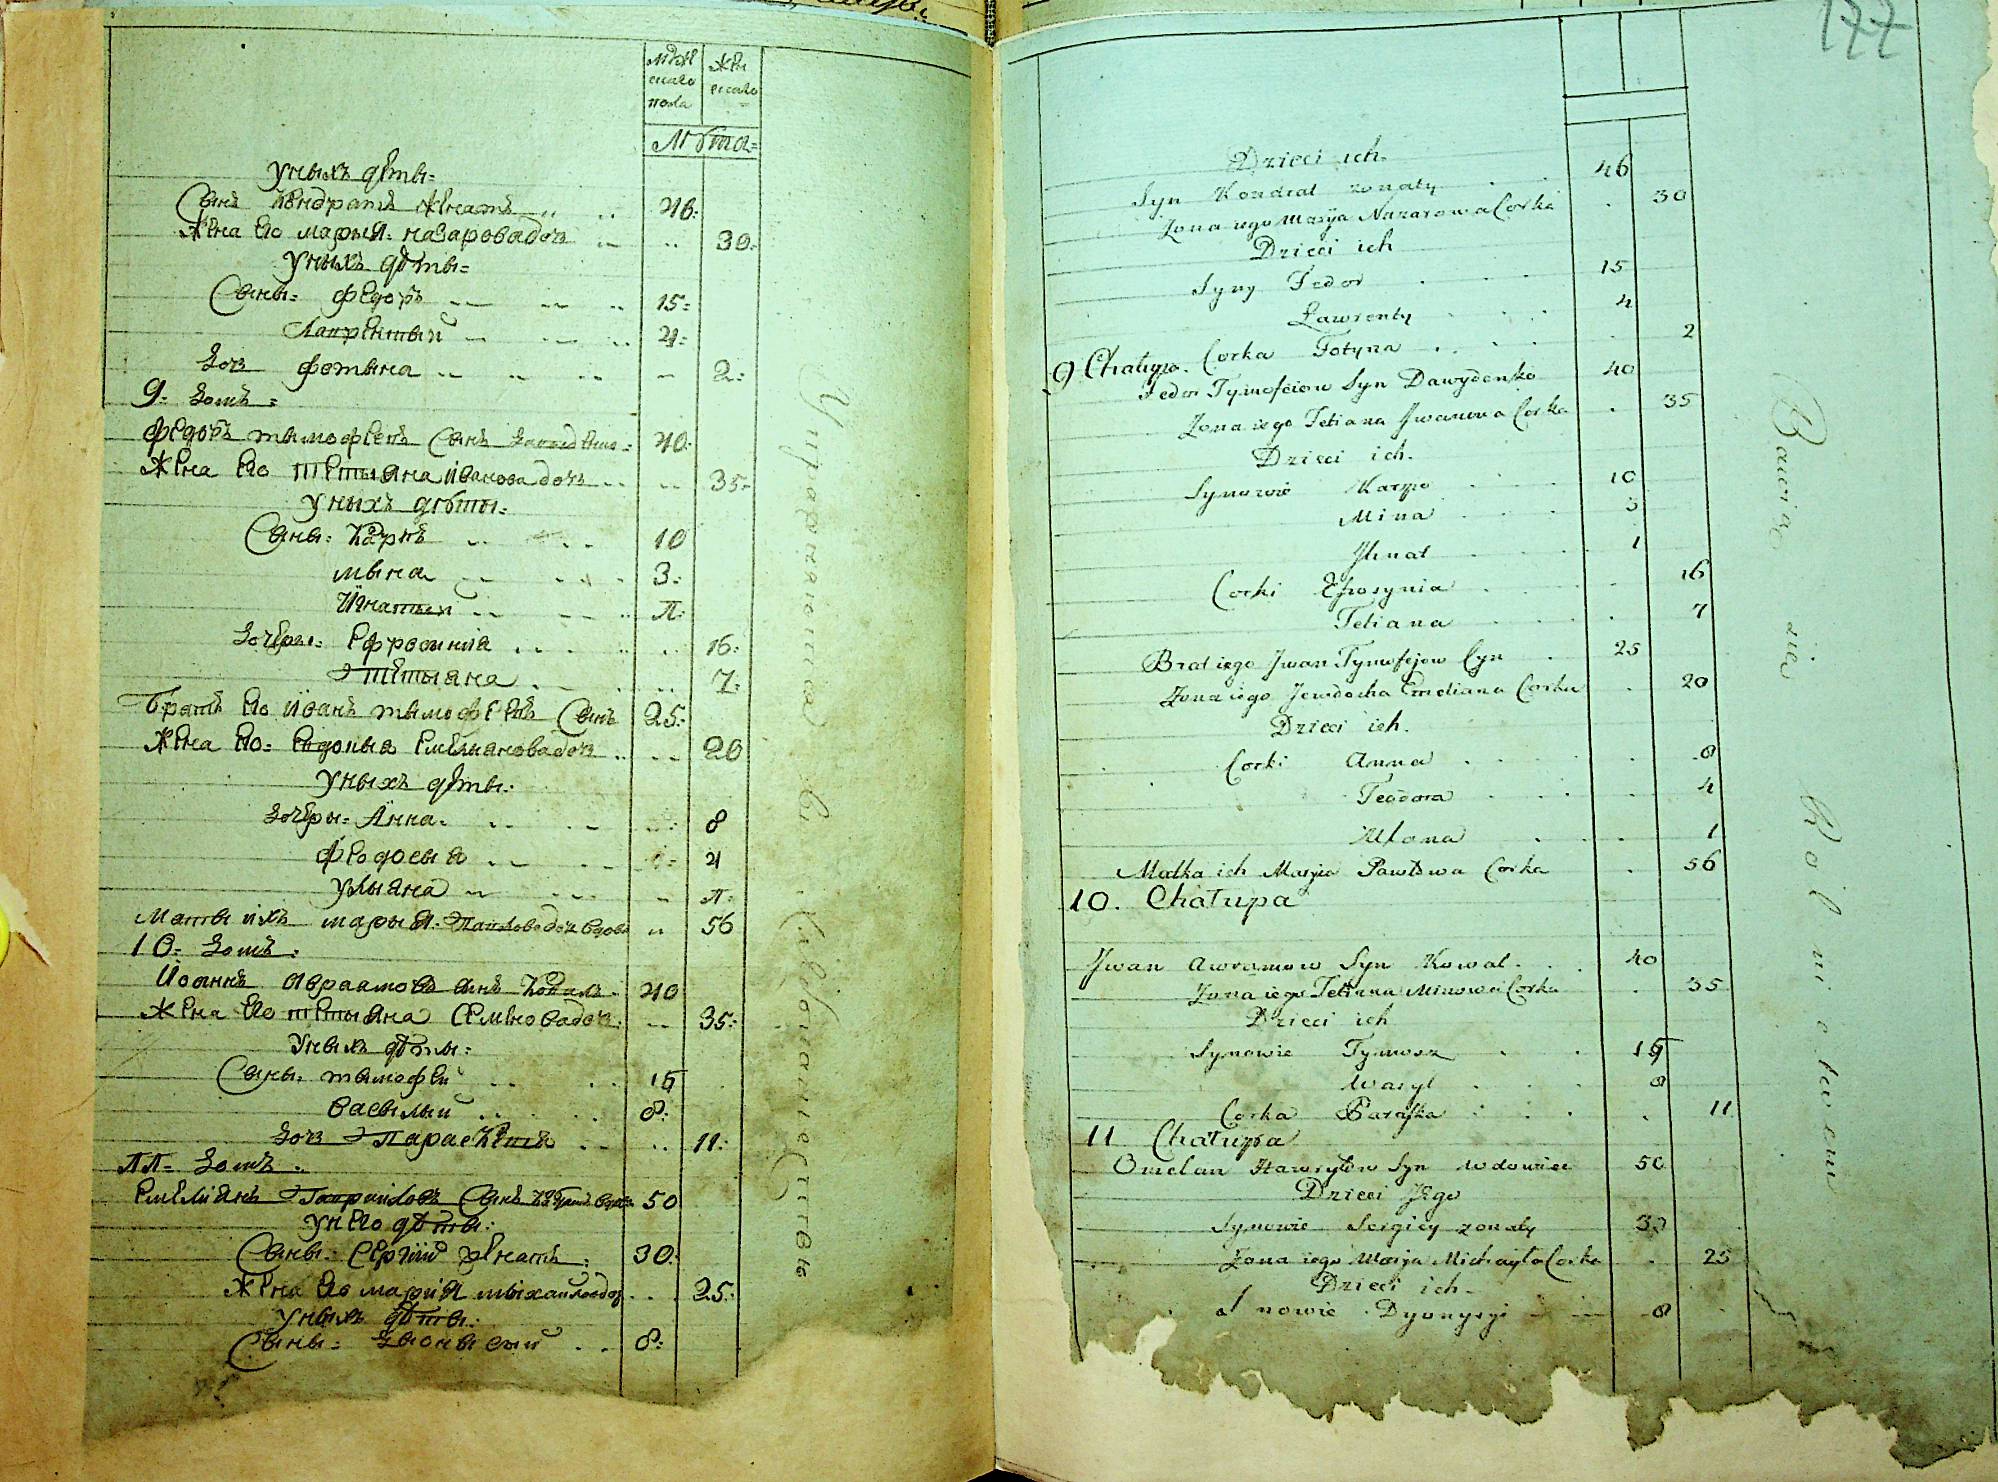 177
мужескаго пола
женскаго
Лѣта
У ныхъ дѣты
Сынъ Кондратъ женатъ 46
Жена его Марыя Назарова доч 30
У ныхъ дѣты
Сыны Федоръ 15
Лаврентый 4
Доч Фотына 2
9 Домъ
Федоръ Тымофеевъ Сынъ 40
Жена его Тетыяна Иванова доч 35
У ныхъ дѣты
Сыны Карпъ 10
Мына 3
Игнатый 1
Дочеры Ефросинія 16
Тетыяна 7
Братъ его Иванъ Тымофеевъ Сынъ 25
Жена его Евдокыя Емелианова доч 20
У ныхъ дѣты
Дочеры Анна 8
Феодосыя 4
Улыяна 1
Маты ихъ Марыя Павлова доч вдова 56
10 Домъ
Иоаннъ Авраамовъ сынъ Коваль 40
Жена его Тетыяна доч 35
У ныхъ дѣты
Сыны Тымофей 15
Васылый 8
Доч Параскевия 11
11 Домъ
Емелиянъ Гавриловъ Сынъ 50
У него дѣты
Сыны Сергий женатъ 30
Жена его Мария Мыхайлова доч 25
У ныхъ дѣты
Сыны Дыонысый 8
Упражняются в Хлебопашестве
Dzieci ich
Syn Kondrat zonaty 46
Zona iego Maryja Nazarowa Corka 30
Dzieci ich
Syny Fedor 15
Ławrenty 4
Corka Fotyna 2
9 Chałupa
Fedor Tymofeiow Syn Dawydenko 40
Zona iego Tetiana Jwanowa Corka 35
Dzieci ich
Synowie Karpo 10
Mina 3
Jhnat 1
Corki Efrosynia 16
Tetiana 7
Brat iego Jwan Tymofejow Syn 25
Zona iego Jewdocha Emeliana Corka 20
Dzieci ich
Corki Anna 8
Teodora 4
Ulana 1
Matka ich Marya Pawłowa Corka 56
10. Chałupa
Jwan Awramow Syn Kowal 40
Zona iego Tetiana Minowa Corka 35
Dzieci ich
Synowie Tymosz 15
Wasyl 8
Corka Paraska 11
11 Chałupa
Omelan Hawryłow Syn wdowiec 50
Dzieci Jego
Synowie Sergiey zonaty 30
Zona iego Marya Michayła Corka 25
Dzieci ich
Synowie Dyonyzyi 8
Bawią się Rolnictwem